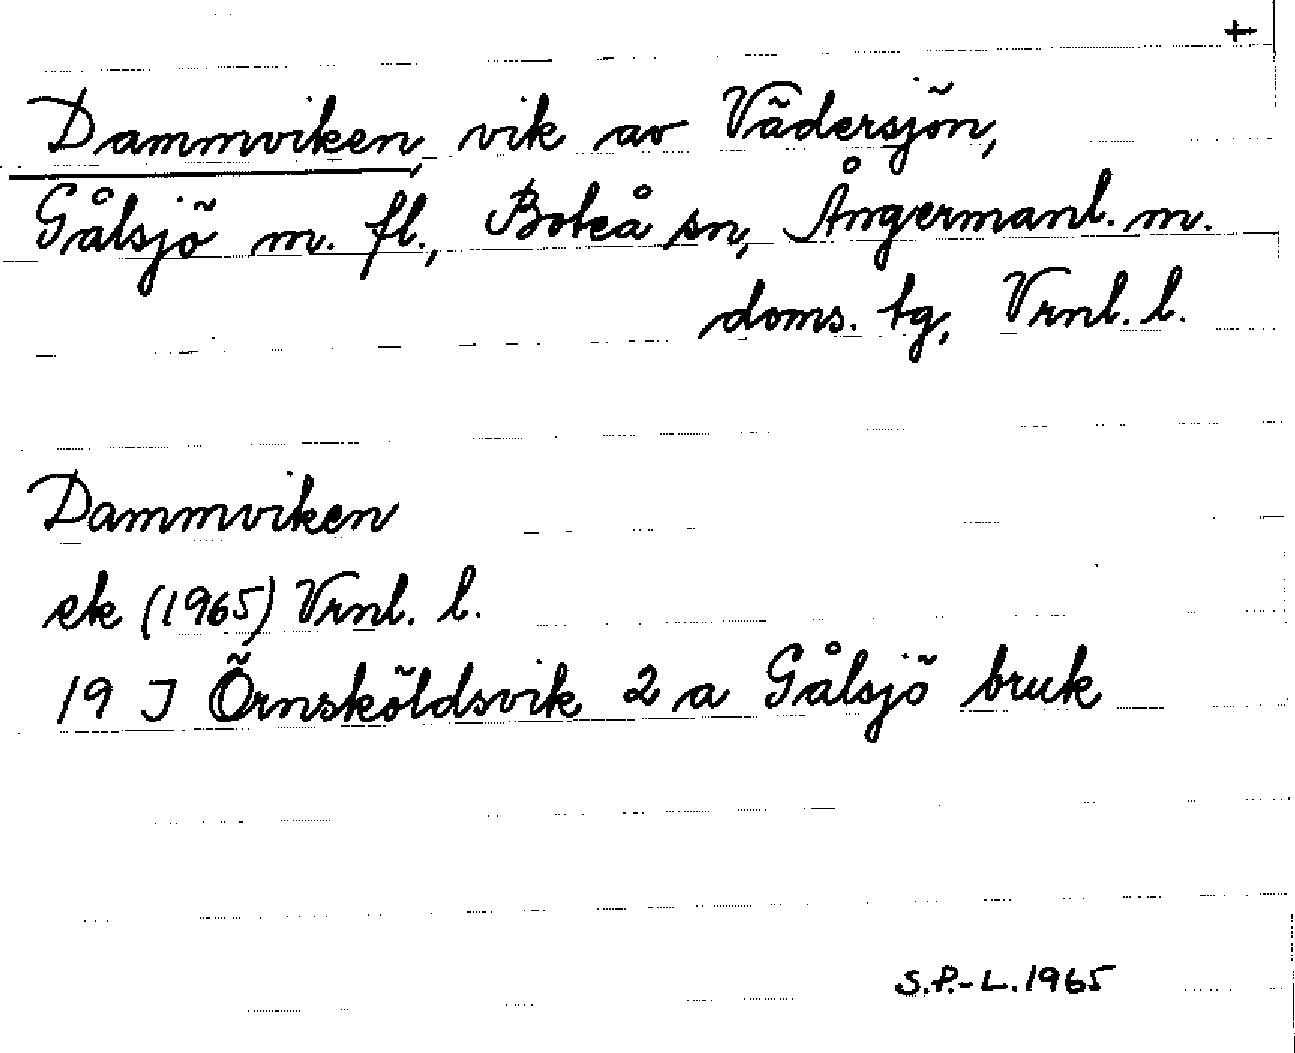 +
Dammviken, vik av Vädersjön,
Gålsjö m. fl., Boteå sn, Ångermanl. m.
doms. tg, Vrnl. l.
Dammviken
ek (1965) Vrnl. l.
19 J Örnsköldsvik 2 a Gålsjö bruk
S.P.-L. 1965